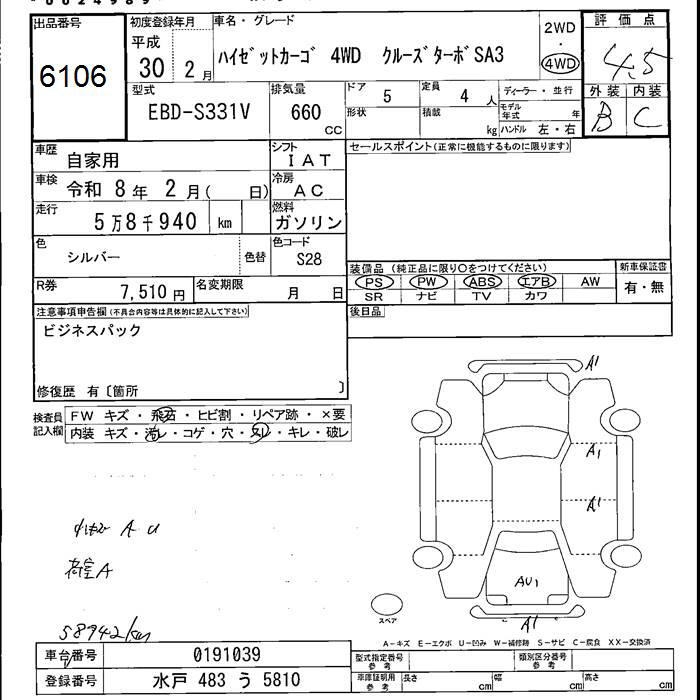 出品番号 初度登録年月 車名・グレード 評価点
6106
平成 30 2月
ハイゼットカーゴ 4WD クルーズターボSA3
2WD ・ 4WD
4.5
外装 内装
B C
型式 排気量 ドア 5 定員 4人 ディーラー・並行
EBD-S331V 660 CC 形状 積載 kg モデル年式 年
ハンドル 左・右
車歴 自家用 シフト IAT セールスポイント(正常に機能するものに限ります)
車検 令和 8年 2月( 日) 冷房 AC
走行 5万8千940 km 燃料 ガソリン
色 シルバー 色替 色コード S28
装備品 (純正品に限り○をつけてください) 新車保証書
PS PW ABS エアB AW 有・無
SR ナビ TV カワ
R券 7,510円 名変期限 月 日
後日品
注意事項申告欄(不具合内容等は具体的に記入して下さい)
ビジネスパック
修復歴 有〔箇所 〕
検査員記入欄 FW キズ・飛石・ヒビ割・リペア跡・×要
内装 キズ・汚レ・コゲ・穴・スレ・キレ・破レ
A1
A1
A1
AU1
A1
A U
荷室A
58942km
スペア
A-キズ E-エクボ U-凹み W-補修跡 S-サビ C-腐食 XX-交換済
車台番号 0191039
登録番号 水戸 483 う 5810
型式指定番号 参考 類別区分番号 参考
車庫証明用 参考 長さ cm 幅 cm 高さ cm